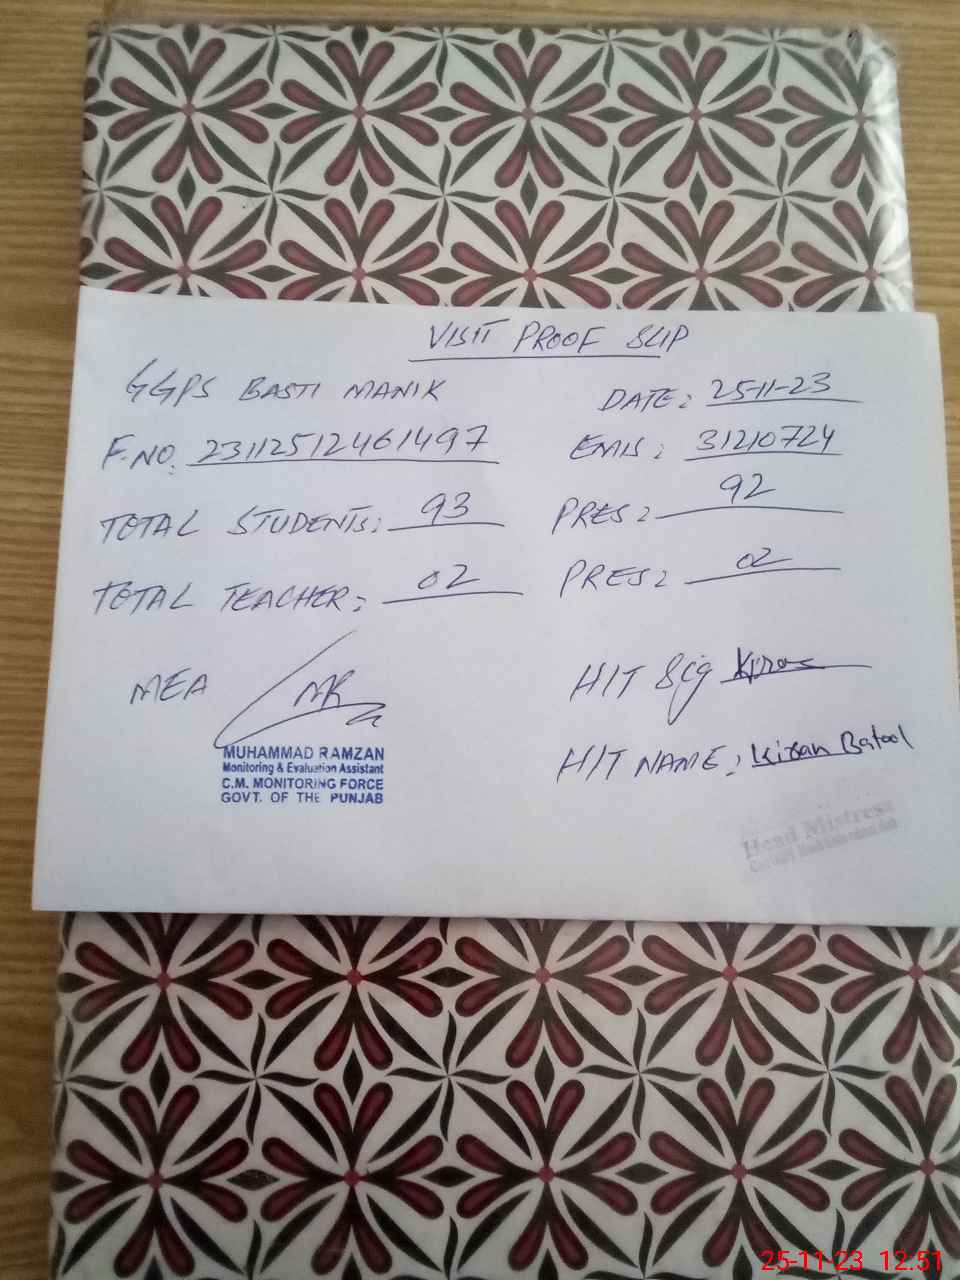 VISIT PROOF SLIP
GGPS BASTI MANIK DATE: 25-11-23
F.NO. 231125124461497 EMIS: 31210724
TOTAL STUDENTS: 93 PRES: 92
TOTAL TEACHER: 02 PRES: 02
MEA MR H/T Sig Kiran
MUHAMMAD RAMZAN
Monitoring & Evaluation Assistant
C.M. MONITORING FORCE
GOVT. OF THE PUNJAB
H/T NAME: Kiran Batool
Head Mistress
25-11-23 12:51